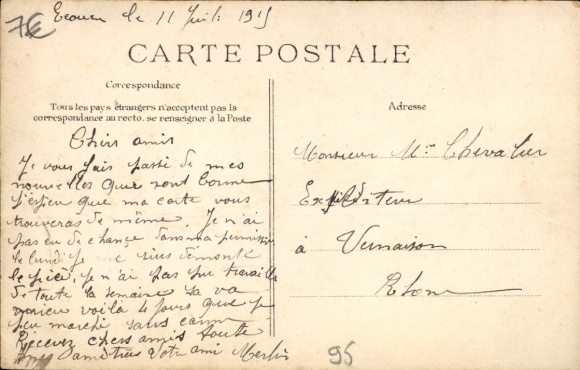 Ecouen le 11 Juil. 1915
CARTE POSTALE
Correspondance
Tous les pays étrangers n'acceptent pas la
correspondance au recto. se renseigner à la Poste
Adresse
Chers amis
Je vous fais passé de mes
nouvelles que sont bonne
j'espien que ma carte vous
trouveras de même. Je n'ai
pas eu de chance dans ma permission
le lundi je me suis démonté
le pied, je n'ai pas pu travaille
de toute la semaine sa va
mieux voila 4 jours que je
peu marché sans canne
Recevez chers amis toute
mes amitiés Votre ami
Monsieur Mr Chevalier
Expéditeur
à Vernaison
Rhone
95